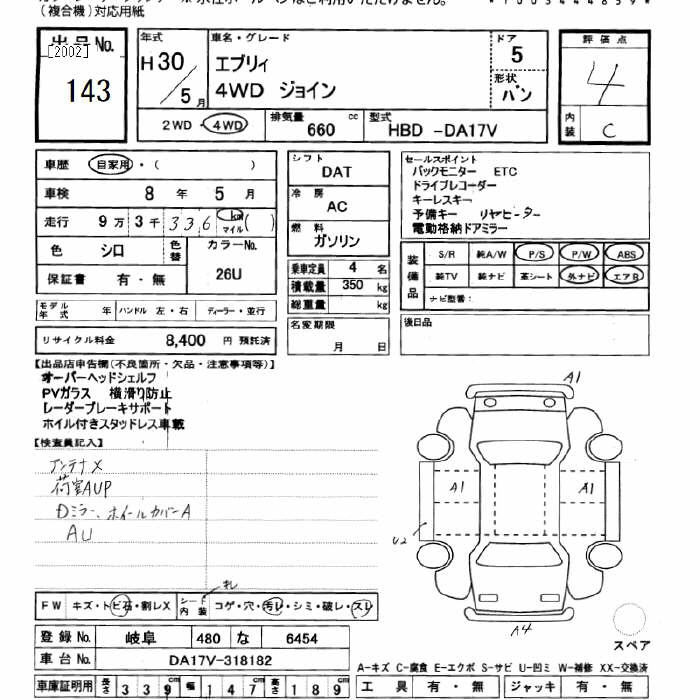 (複合機)対応用紙
出品No.
[2002]
143
年式
H30/5月
車名・グレード
エブリィ
4WD ジョイン
ドア
5
形状
バン
評価点
4
内装
C
2WD・4WD
排気量 660 cc
型式 HBD-DA17V
車歴 自家用・( )
車検 8年 5月
走行 9万 3千 336 km マイル ( )
色 シロ 色替
カラーNo.
26U
保証書 有・無
モデル年式 年 ハンドル 左・右 ディーラー・並行
リサイクル料金 8,400 円 預託済
シフト
DAT
冷房
AC
燃料
ガソリン
乗車定員 4 名
積載量 350 kg
総重量 kg
名変期限
月 日
セールスポイント
バックモニター ETC
ドライブレコーダー
キーレスキー
予備キー リヤヒーター
電動格納ドアミラー
装備品
S/R 純A/W P/S P/W ABS
純TV 純ナビ 革シート 外ナビ エアB
ナビ型番:
後日品
【出品店申告欄(不良箇所・欠品・注意事項等)】
オーバーヘッドシェルフ
PVガラス 横滑り防止
レーダーブレーキサポート
ホイル付きスタッドレス車載
【検査員記入】
アンテナX
荷室AUP
Dミラー、ホイールカバーA
AU
A1
A1
A1
U2
A4
スペア
FW キズ・トビ石・割レX シート内装 コゲ・穴・汚レ・シミ・破レ・スレ
登録No. 岐阜 480 な 6454
車台No. DA17V-318182
車庫証明用 長さ 339cm 幅 147cm 高さ 189cm
A-キズ C-腐食 E-エクボ S-サビ U-凹ミ W-補修 XX-交換済
工具 有・無 ジャッキ 有・無